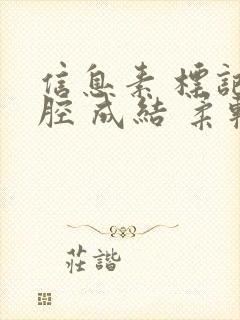 信息素 標記
腔 成結 柔軟
莊諧